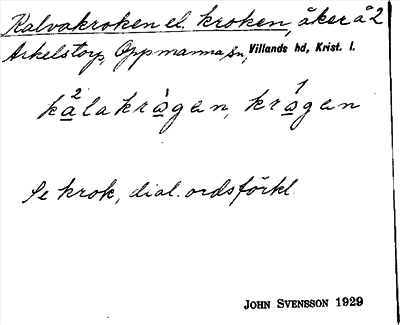 Kalvakroken el. kroken, åker å 2
Arkelstorp, Oppmanna sn, Villands hd, Krist. l.
kålakrågen, krågen
Se krok, dial. ordsförkl.
JOHN SVENSSON 1929